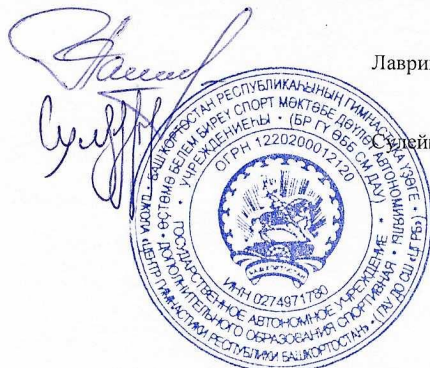 Лаври
Сулей
БАШҠОРТОСТАН РЕСПУБЛИКАҺЫНЫҢ ГИМНАСТИКА ҮҘӘГЕ
ӨҪТӘМӘ БЕЛЕМ БИРЕҮ СПОРТ МӘКТӘБЕ ДӘҮЛӘТ АВТОНОМИЯЛЫ
УЧРЕЖДЕНИЕҺЫ • (БР ГҮ ӨББ СМ ДАУ)
ОГРН 1220200012120
ИНН 0274971780
ГОСУДАРСТВЕННОЕ АВТОНОМНОЕ УЧРЕЖДЕНИЕ
ДОПОЛНИТЕЛЬНОГО ОБРАЗОВАНИЯ СПОРТИВНАЯ
ШКОЛА «ЦЕНТР ГИМНАСТИКИ РЕСПУБЛИКИ БАШКОРТОСТАН» • (ГАУ ДО СШ ЦГ РБ)